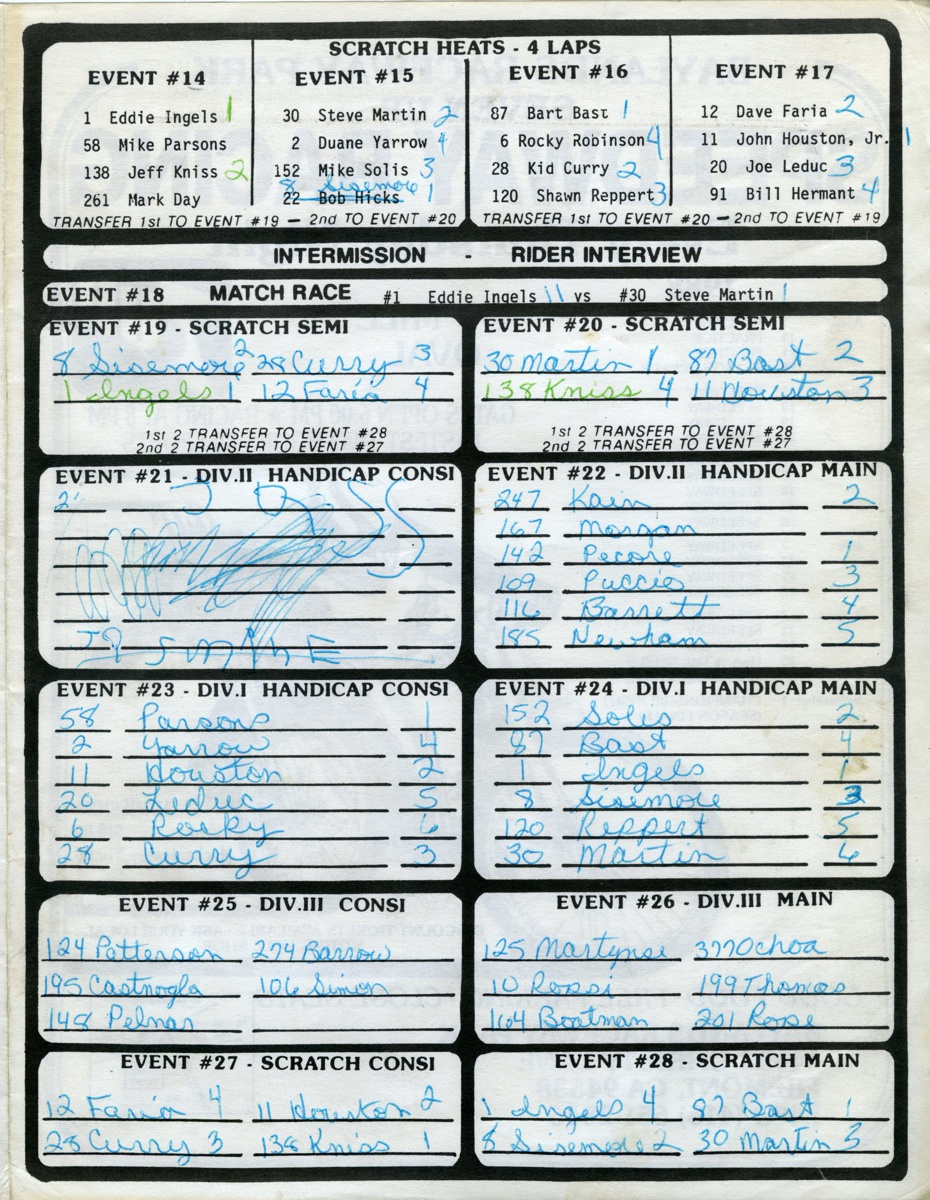 SCRATCH HEATS - 4 LAPS
EVENT #14
1 Eddie Ingels 1
58 Mike Parsons
138 Jeff Kniss 2
261 Mark Day
EVENT #15
30 Steve Martin 2
2 Duane Yarrow 4
152 Mike Solis 3
8 Sisemore 1
22 Bob Hicks
TRANSFER 1st TO EVENT #19 — 2nd TO EVENT #20
EVENT #16
87 Bart Bast 1
6 Rocky Robinson 4
28 Kid Curry 2
120 Shawn Reppert 3
EVENT #17
12 Dave Faria 2
11 John Houston, Jr. 1
20 Joe Leduc 3
91 Bill Hermant 4
TRANSFER 1st TO EVENT #20 — 2nd TO EVENT #19
INTERMISSION - RIDER INTERVIEW
EVENT #18 MATCH RACE #1 Eddie Ingels 11 vs #30 Steve Martin 1
EVENT #19 - SCRATCH SEMI
8 Sisemore 2 28 Curry 3
1 Ingels 1 12 Faria 4
1st 2 TRANSFER TO EVENT #28
2nd 2 TRANSFER TO EVENT #27
EVENT #20 - SCRATCH SEMI
30 Martin 1 87 Bast 2
138 Kniss 4 11 Houston 3
1st 2 TRANSFER TO EVENT #28
2nd 2 TRANSFER TO EVENT #27
EVENT #21 - DIV.II HANDICAP CONSI
EVENT #22 - DIV.II HANDICAP MAIN
247 Kain 2
167 Morgan
142 Pecore 1
109 Puccio 3
116 Barrett 4
185 Newham 5
EVENT #23 - DIV.I HANDICAP CONSI
58 Parsons 1
2 Yarrow 4
11 Houston 2
20 Leduc 5
6 Rocky 6
28 Curry 3
EVENT #24 - DIV.I HANDICAP MAIN
152 Solis 2
87 Bast 4
1 Ingels 1
8 Sisemore 3
120 Reppert 5
30 Martin 6
EVENT #25 - DIV.III CONSI
124 Patterson 274 Barrow
195 Castnogla 106 Simon
148 Pelnar
EVENT #26 - DIV.III MAIN
125 Martynse 377 Ochoa
10 Rossi 199 Thomas
164 Boatman 201 Rose
EVENT #27 - SCRATCH CONSI
12 Faria 4 11 Houston 2
28 Curry 3 138 Kniss 1
EVENT #28 - SCRATCH MAIN
1 Ingels 4 87 Bast 1
8 Sisemore 2 30 Martin 3